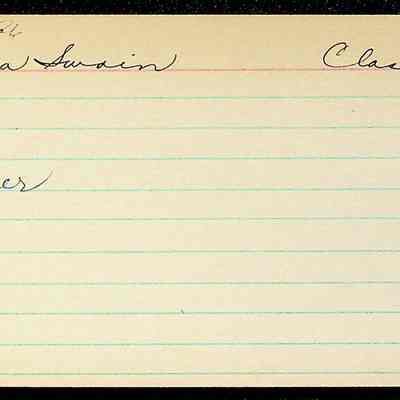 a Swain Clas
er